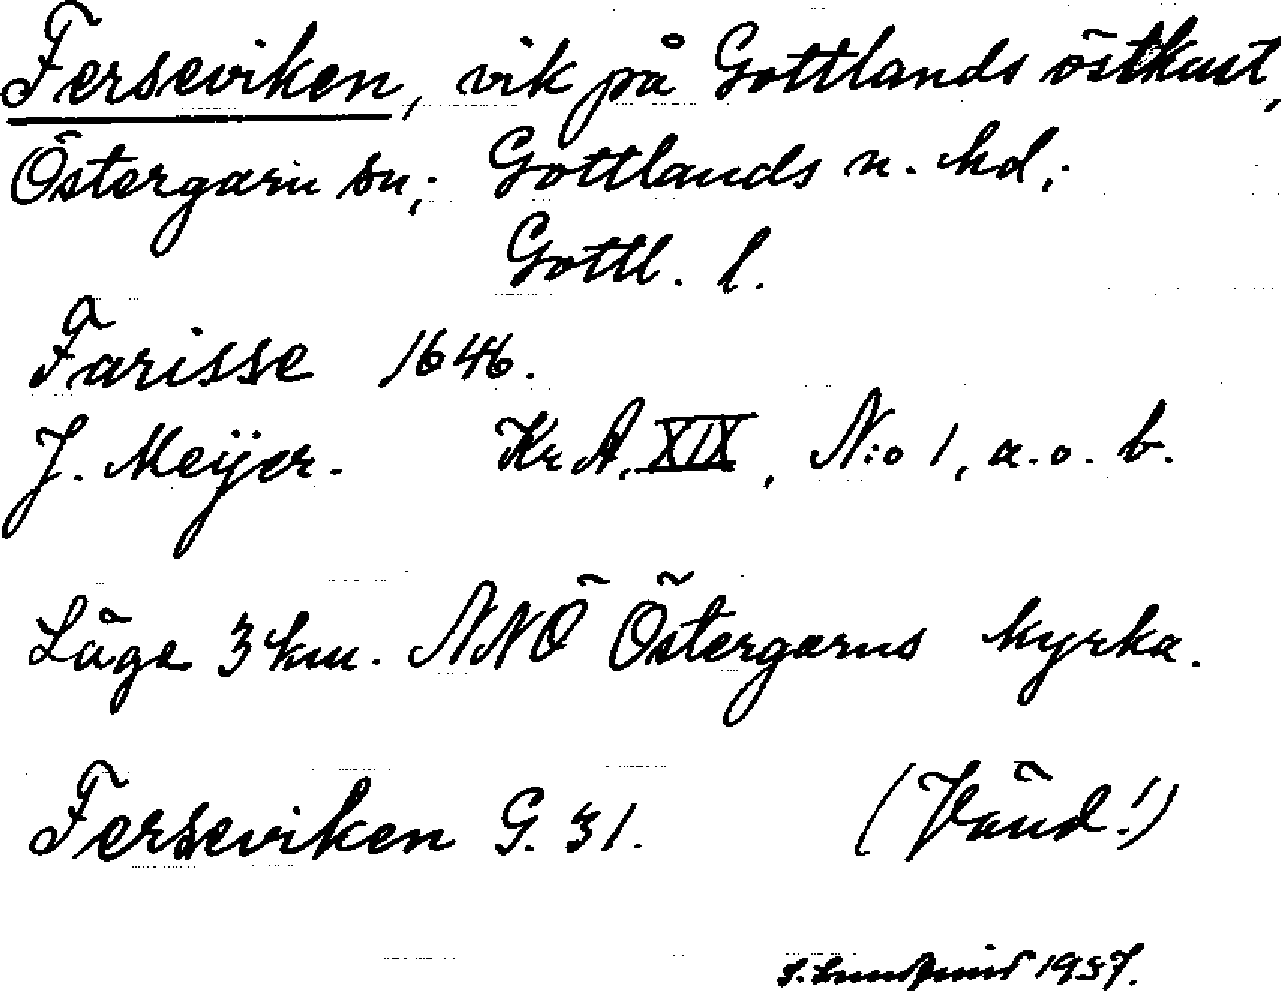 Ferseviken, vik på Gottlands östkust,
Östergarn sn; Gottlands n. hd;
Gottl. l.
Farisse 1646.
J. Meijer. Kr A, XIX, N:o 1, a. o. b.
Läge 3 km. NNÖ Östergarns kyrka.
Ferseviken G. 31. (Vänd!)
1937.